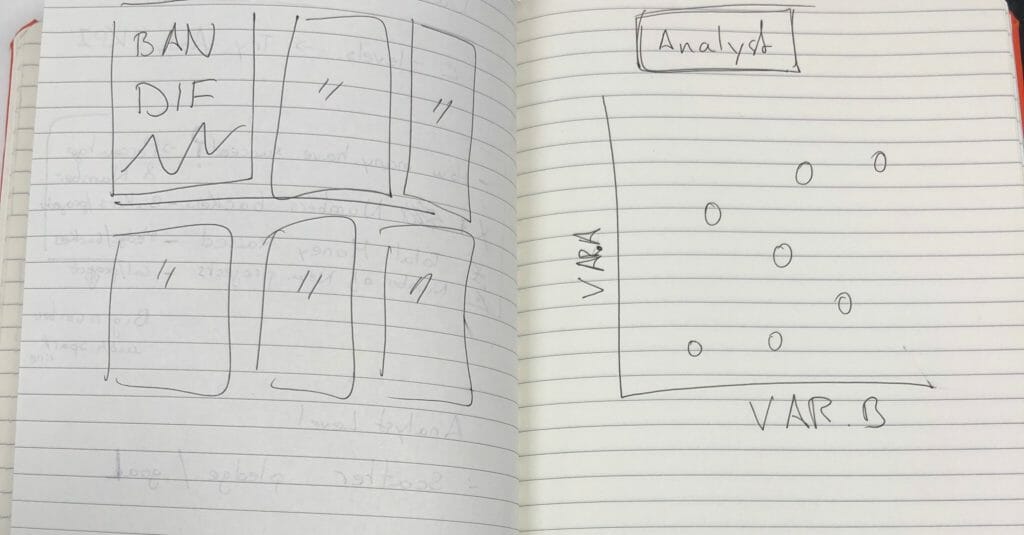 BAN
DIF
"
"
"
"
"
Analyst
VAR.A
VAR.B